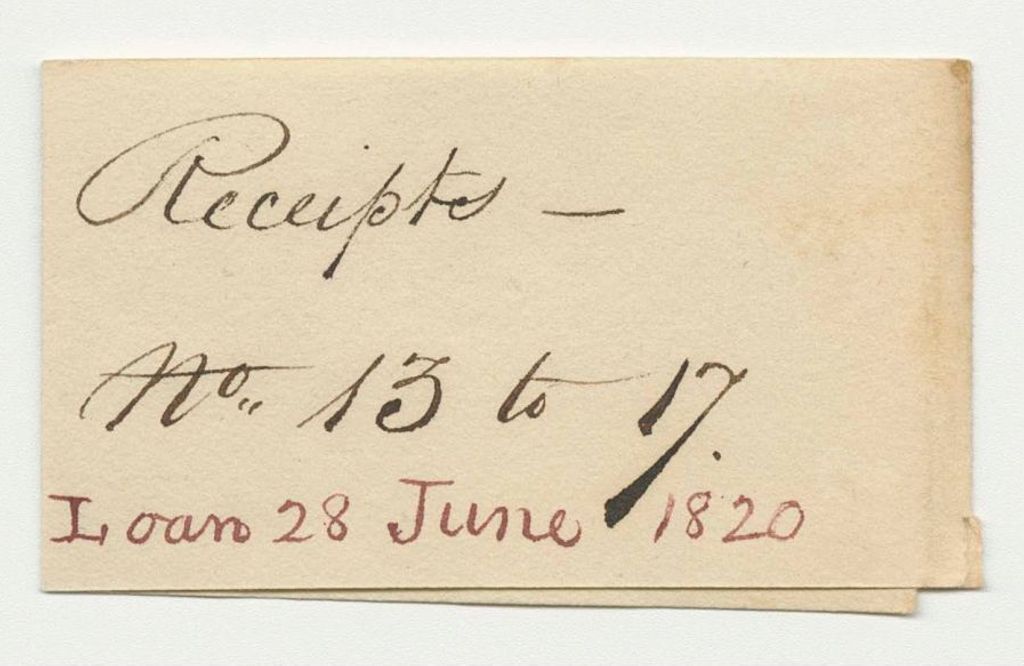 Receipts —
No. 13 to 17.
Loan 28 June 1820